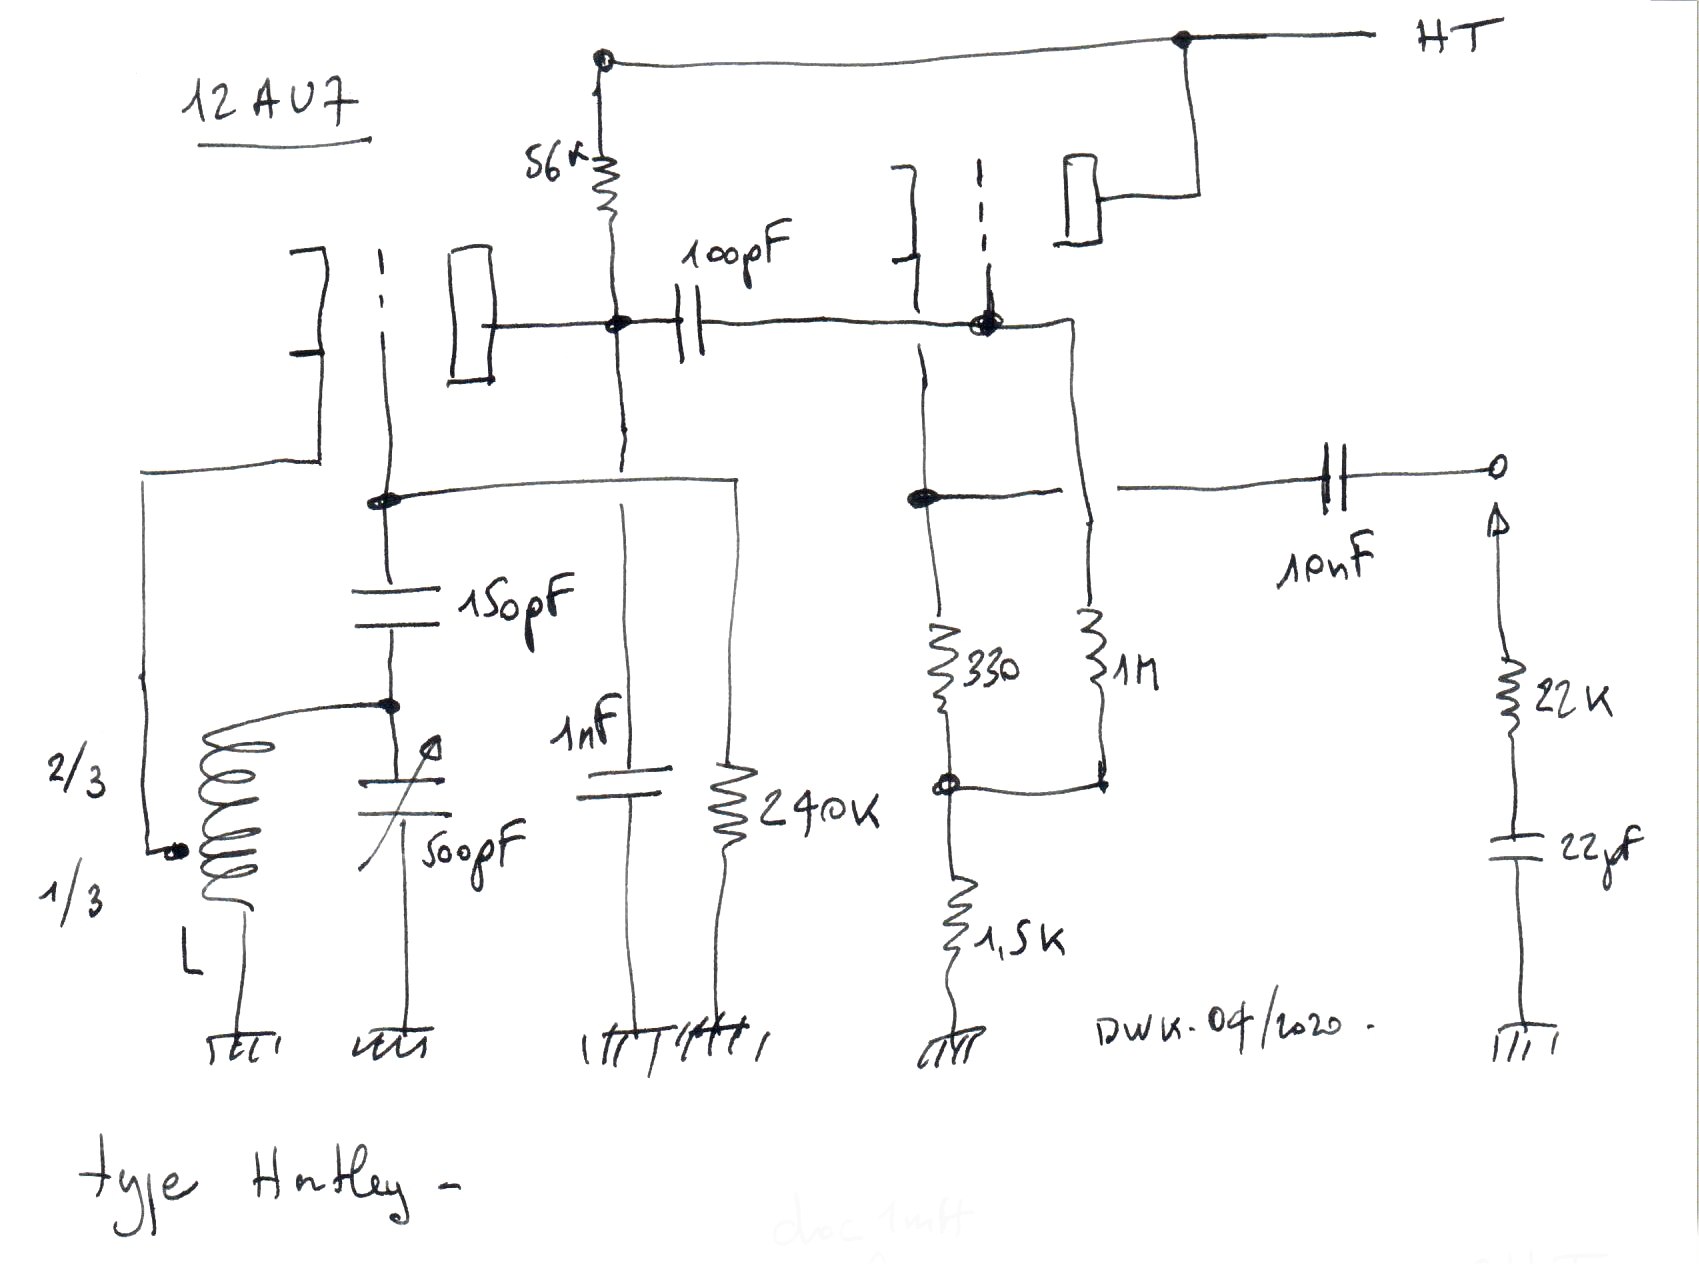 HT
12AU7
56K
100pF
10nF
150pF
330
1M
22K
1nF
2/3
240K
500pF
22µF
1/3
1,5K
L
DWK. 04/2020.
type Hartley -